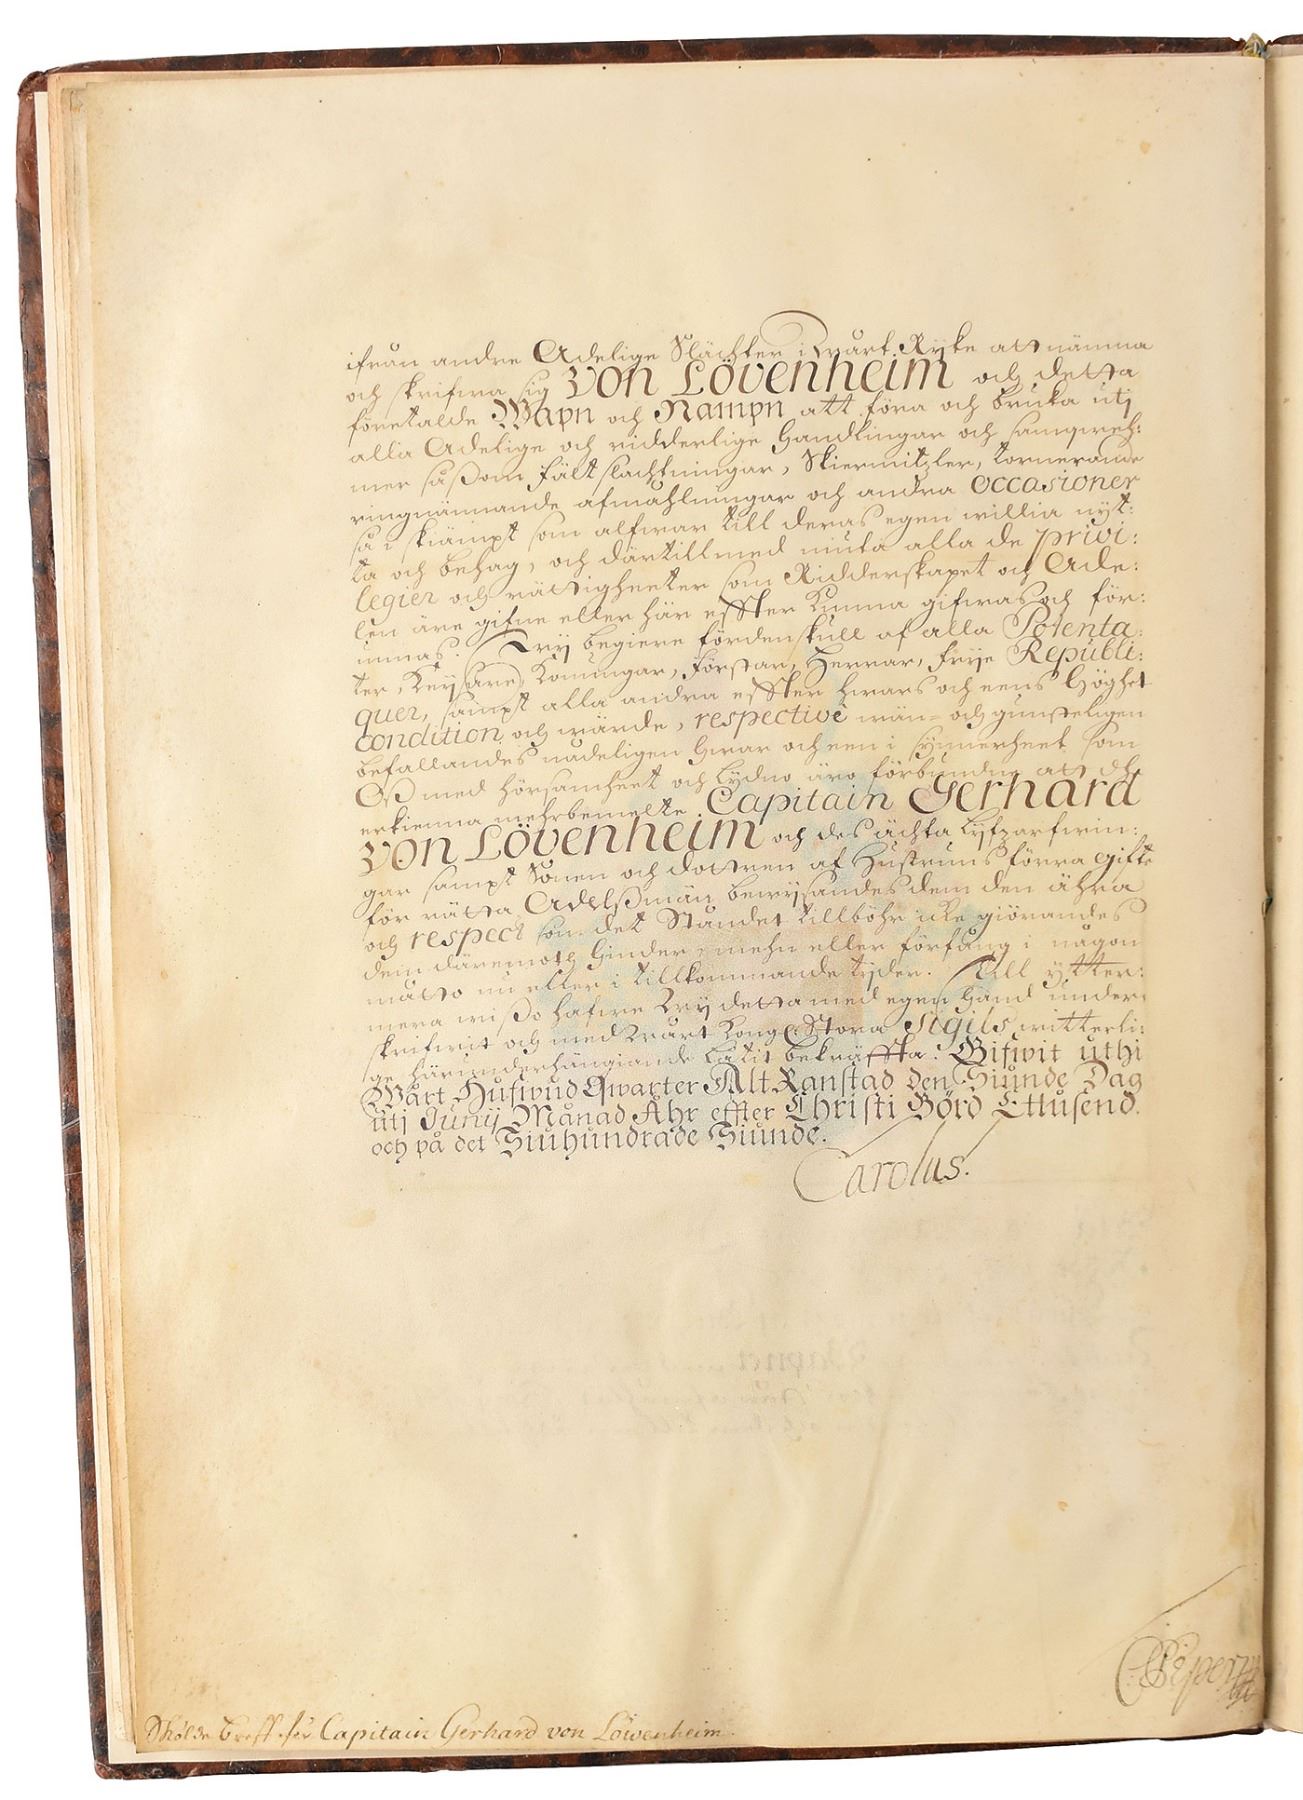 ifrån andre Adelige Slächter i Wårt Ryke att nämna
och skrifwa sig von Lövenheim och detta
företalde Wapn och Nampn att föra och bruka utj
alla Adelige och ridderlige Handlingar och sampqwäh:
mer såßom fältslachtningar, Skiermitzler, torneramde
ringrännande afmåhlningar och andra occasioner
så i skiämpt som alfwar till deras egen willia nyt:
ta och behag, och därtillmed niuta alla de privi:
legier och rättigheeter som Ridderskapet och Ade:
len äre gifne eller här effter kunna gifwas och för:
unnas. Wij begiere fördenskull af alla Potenta:
ter, Keysare, Konungar, Förstar, Herrar, frye Republi:
quer, sampt alla andra effter hwars och eens Höghet
condition och wärde, respective wän= och gunsteligen
befallandes nådeligen hwar och een i synnerheet som
Oß med hörsamheet och lydno äro förbundne att de
erkienna mehrbemelte Capitain Gerhard
von Lövenheim och des ächta lyfzarfwin:
gar sampt Sonen och dottren af Hustruns förra gifte
för rätta Adelßmän bewysandes dem den ähra
och respect som det Ståndet tillböhr icke giörandes
dem däremoth hinder, mehn eller förfång i någon
måtto nu eller i tillkommande tyder. Till ytter:
mera wißo hafwe Wij detta med egen Hand under:
skrifwit och med Wårt Kongl: Stora Sigils witterli:
ge härunderhängiande låtit bekräffta. Gifwit uthi
Wårt Hufwud Qwarter Alt Ranstad den Siunde Dag
utj Junij Månad Åhr effter Christi Börd Ettusend
och på det Siuhundrade Siunde.
Carolus.
C Piper
Skölde breff för Capitain Gerhard von Löwenheim.